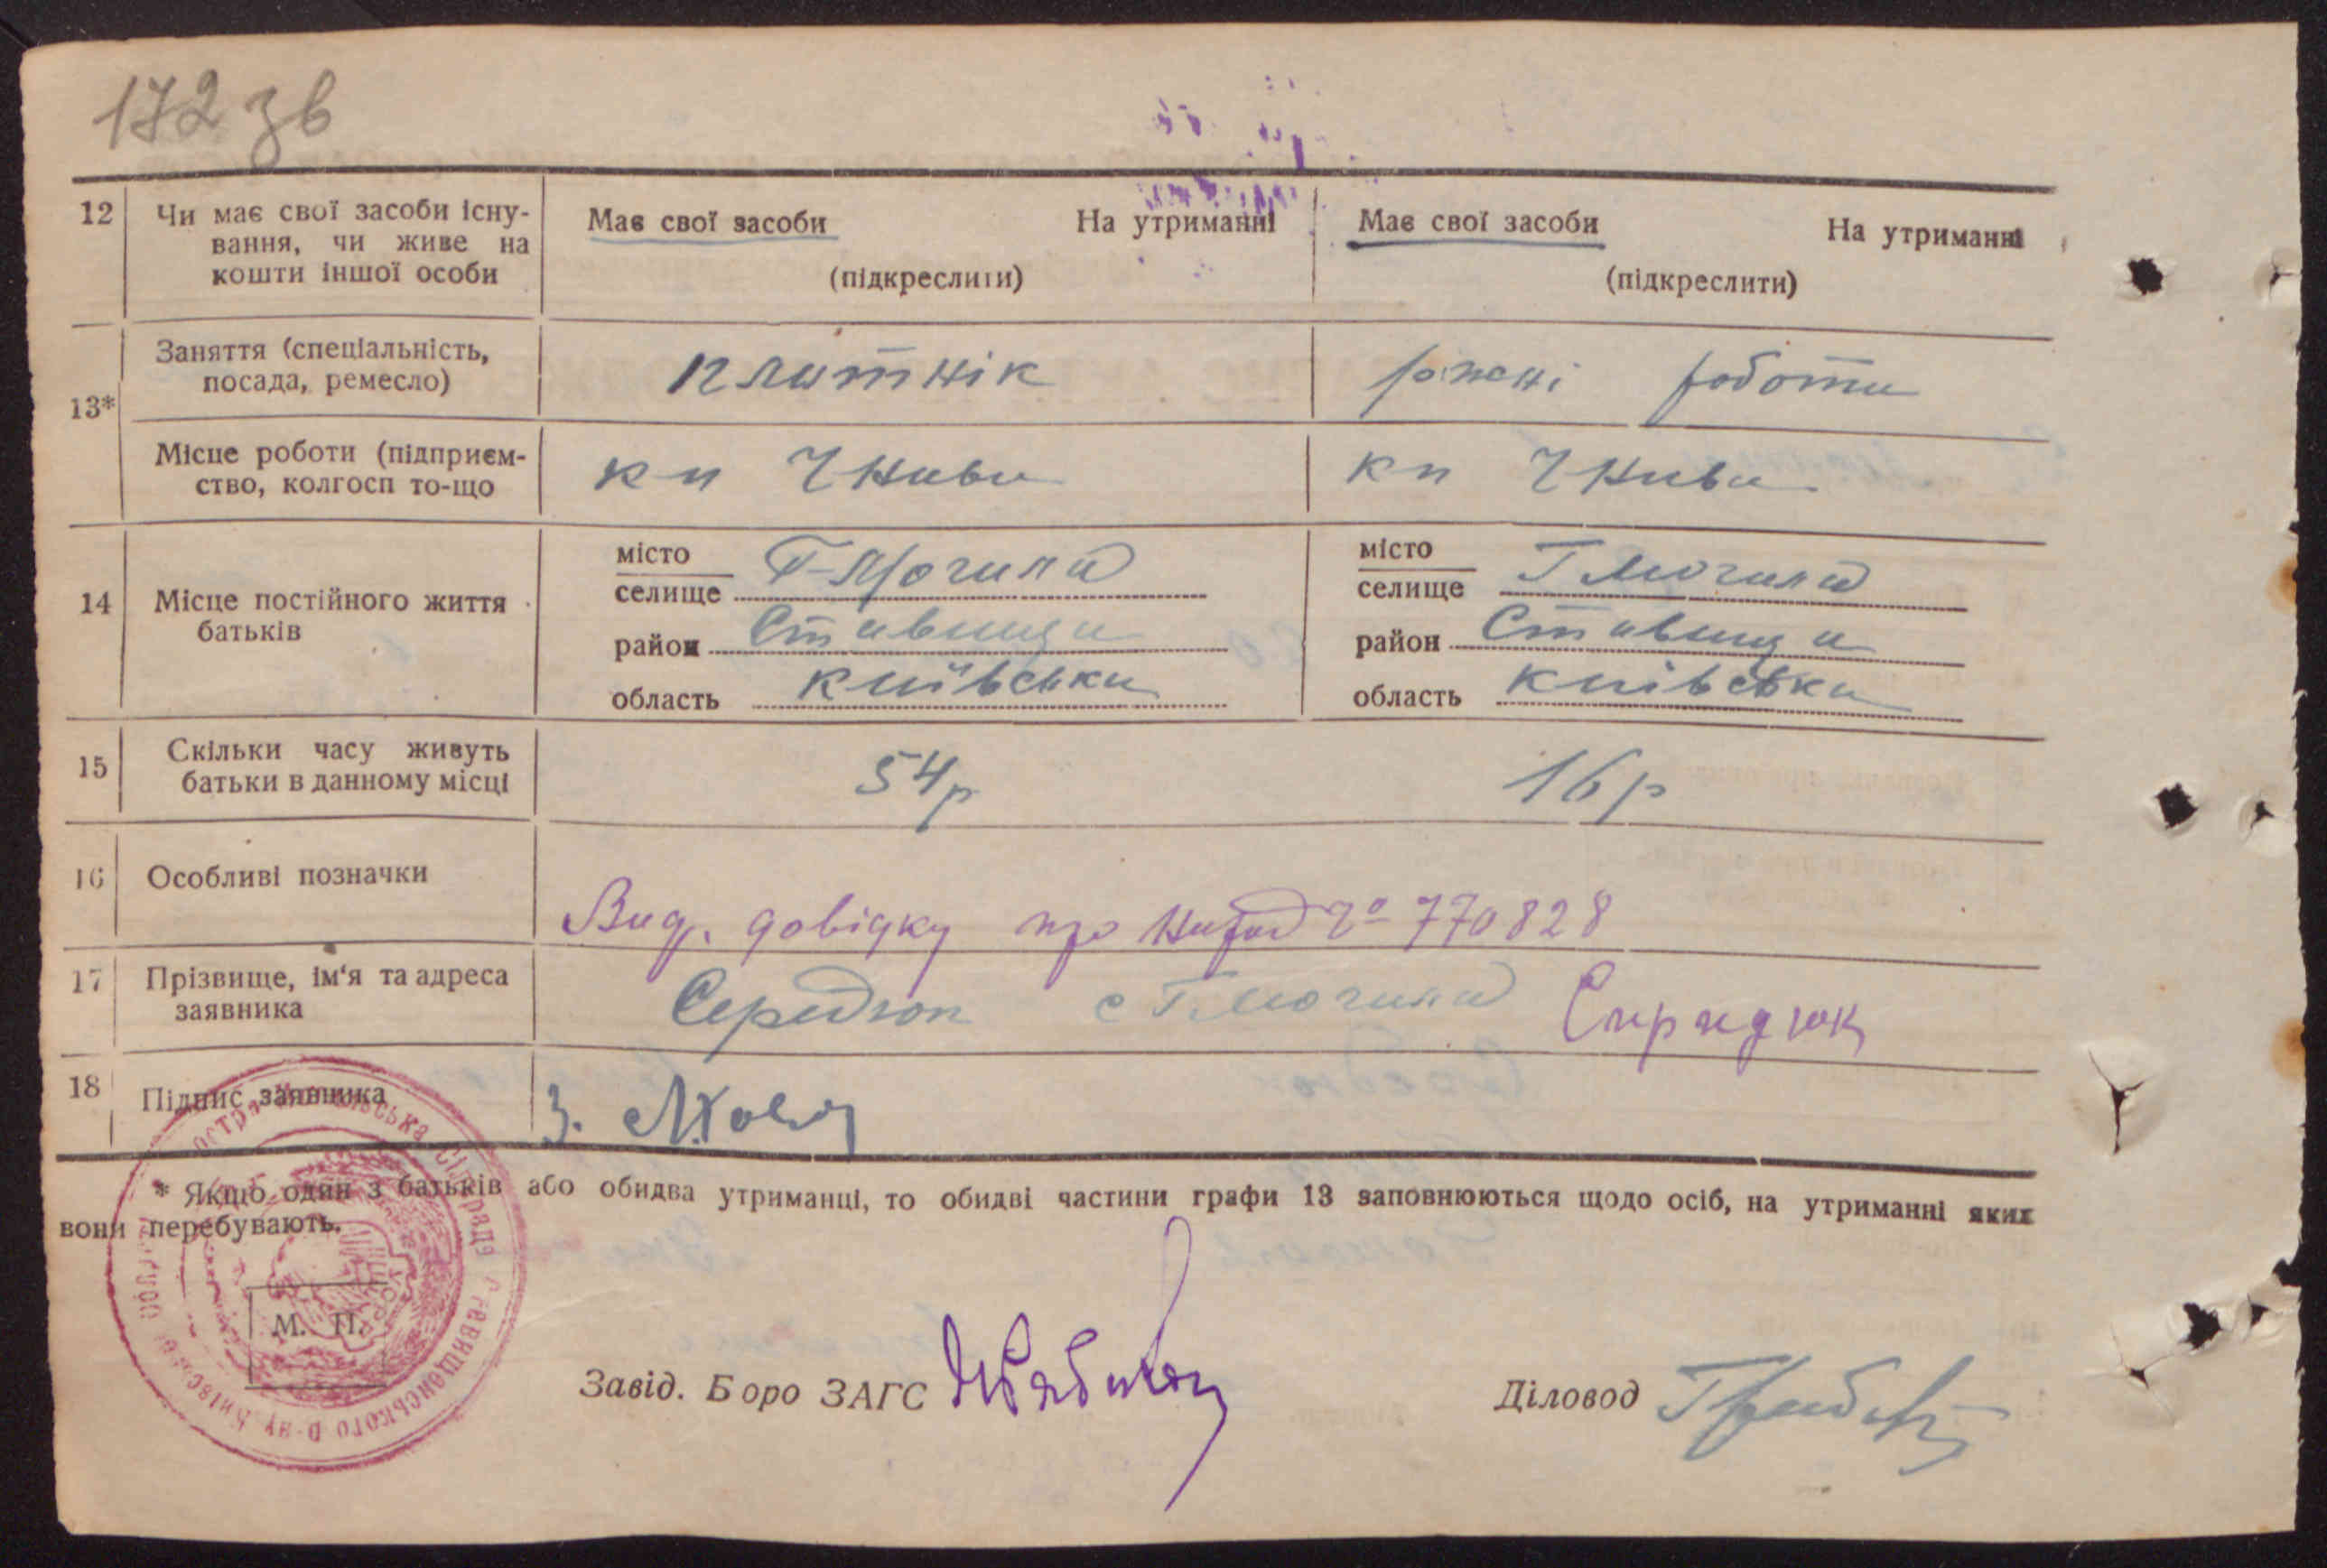 172 зв
12 Чи має свої засоби існу-
вання, чи живе на
кошти іншої особи
Має свої засоби На утриманні
(підкреслити)
Має свої засоби На утриманні
(підкреслити)
13* Заняття (спеціальність,
посада, ремесло)
плотнік
роботи
Місце роботи (підприєм-
ство, колгосп то-що
кп Жниви
кп Жниви
14 Місце постійного життя
батьків
місто
селище Г-Могила
район Ставища
область київська
місто
селище Г Могила
район Ставища
область київська
15 Скільки часу живуть
батьки в данному місці
54р
16р
16 Особливі позначки
Вид. довідку про народ № 770828
17 Прізвище, ім'я та адреса
заявника
Середюк с Г Могила
18 Підпис заявника
* Якщо один з батьків або обидва утриманці, то обидві частини графи 13 заповнюються щодо осіб, на утриманні яких
вони перебувають.
М. П.
Завід. Боро ЗАГС
Діловод